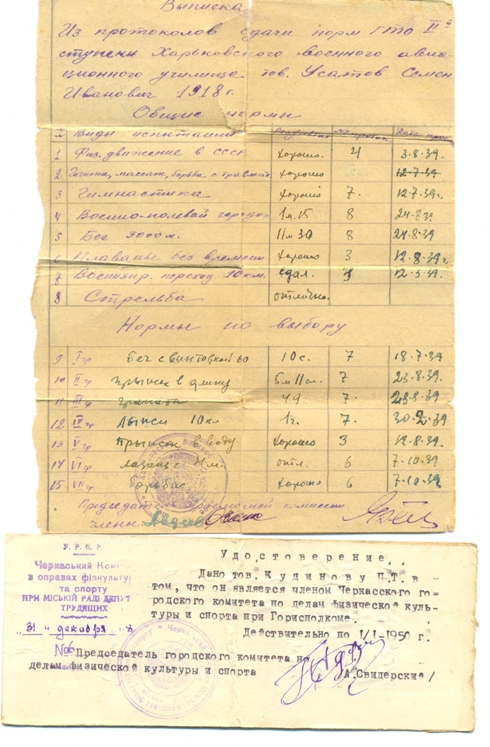 Выписка
Из протоколов сдачи норм ГТО II й
ступени Харьковского военного авиа
ционного училища тов. Усатов Семен
Иванович 1918 г.
Общие нормы
Виды испытаний
1 Физ. движение в СССР хорошо 4 3.8.39.
2 хорошо 12.7.39
3 Гимнастика хорошо 7. 12.7.39г
4 1м.15 8 24.8.39
5 Бег 3000м. 11м30 8 24.8.39
6 Плаванье без времени хорошо 3 12.8.39г
7 переход 10 км. сдал. 12.3.39
8 Стрельба отлично.
Нормы по выбору
9 I гр бег с винтовкой 10с. 7 18.7.39
10 II гр прыжок в длину 5м 11 7. 23.8.39.
11 III гр граната 49 7. 23.8.39.
12 IV гр Лыжи 10 км 1ч. 7
13 V гр прыжок в воду хорошо 3 12.8.39.
14 VI гр лазанье отл. 6 7.10.39
15 VII гр борьба хорошо 6 7.10.39.
Председатель комиссии
члены
У.Р.С.Р.
Черкаський Ком
в справах фізкультур
та спорту
ПРИ МІСЬКІЙ РАДІ ДЕПУТ
ТРУДЯЩИХ
31 " декабря
№6
Удостоверение.
Дано тов. Кудинову П.Т. в
том, что он является членом Черкасского го-
родского комитета по делам физической куль-
туры и спорта при Горисполкоме.
Действительно по 1/I-1950 г.
Председатель городского комитета по
делам физической культуры и спорта /А.Свидерский/